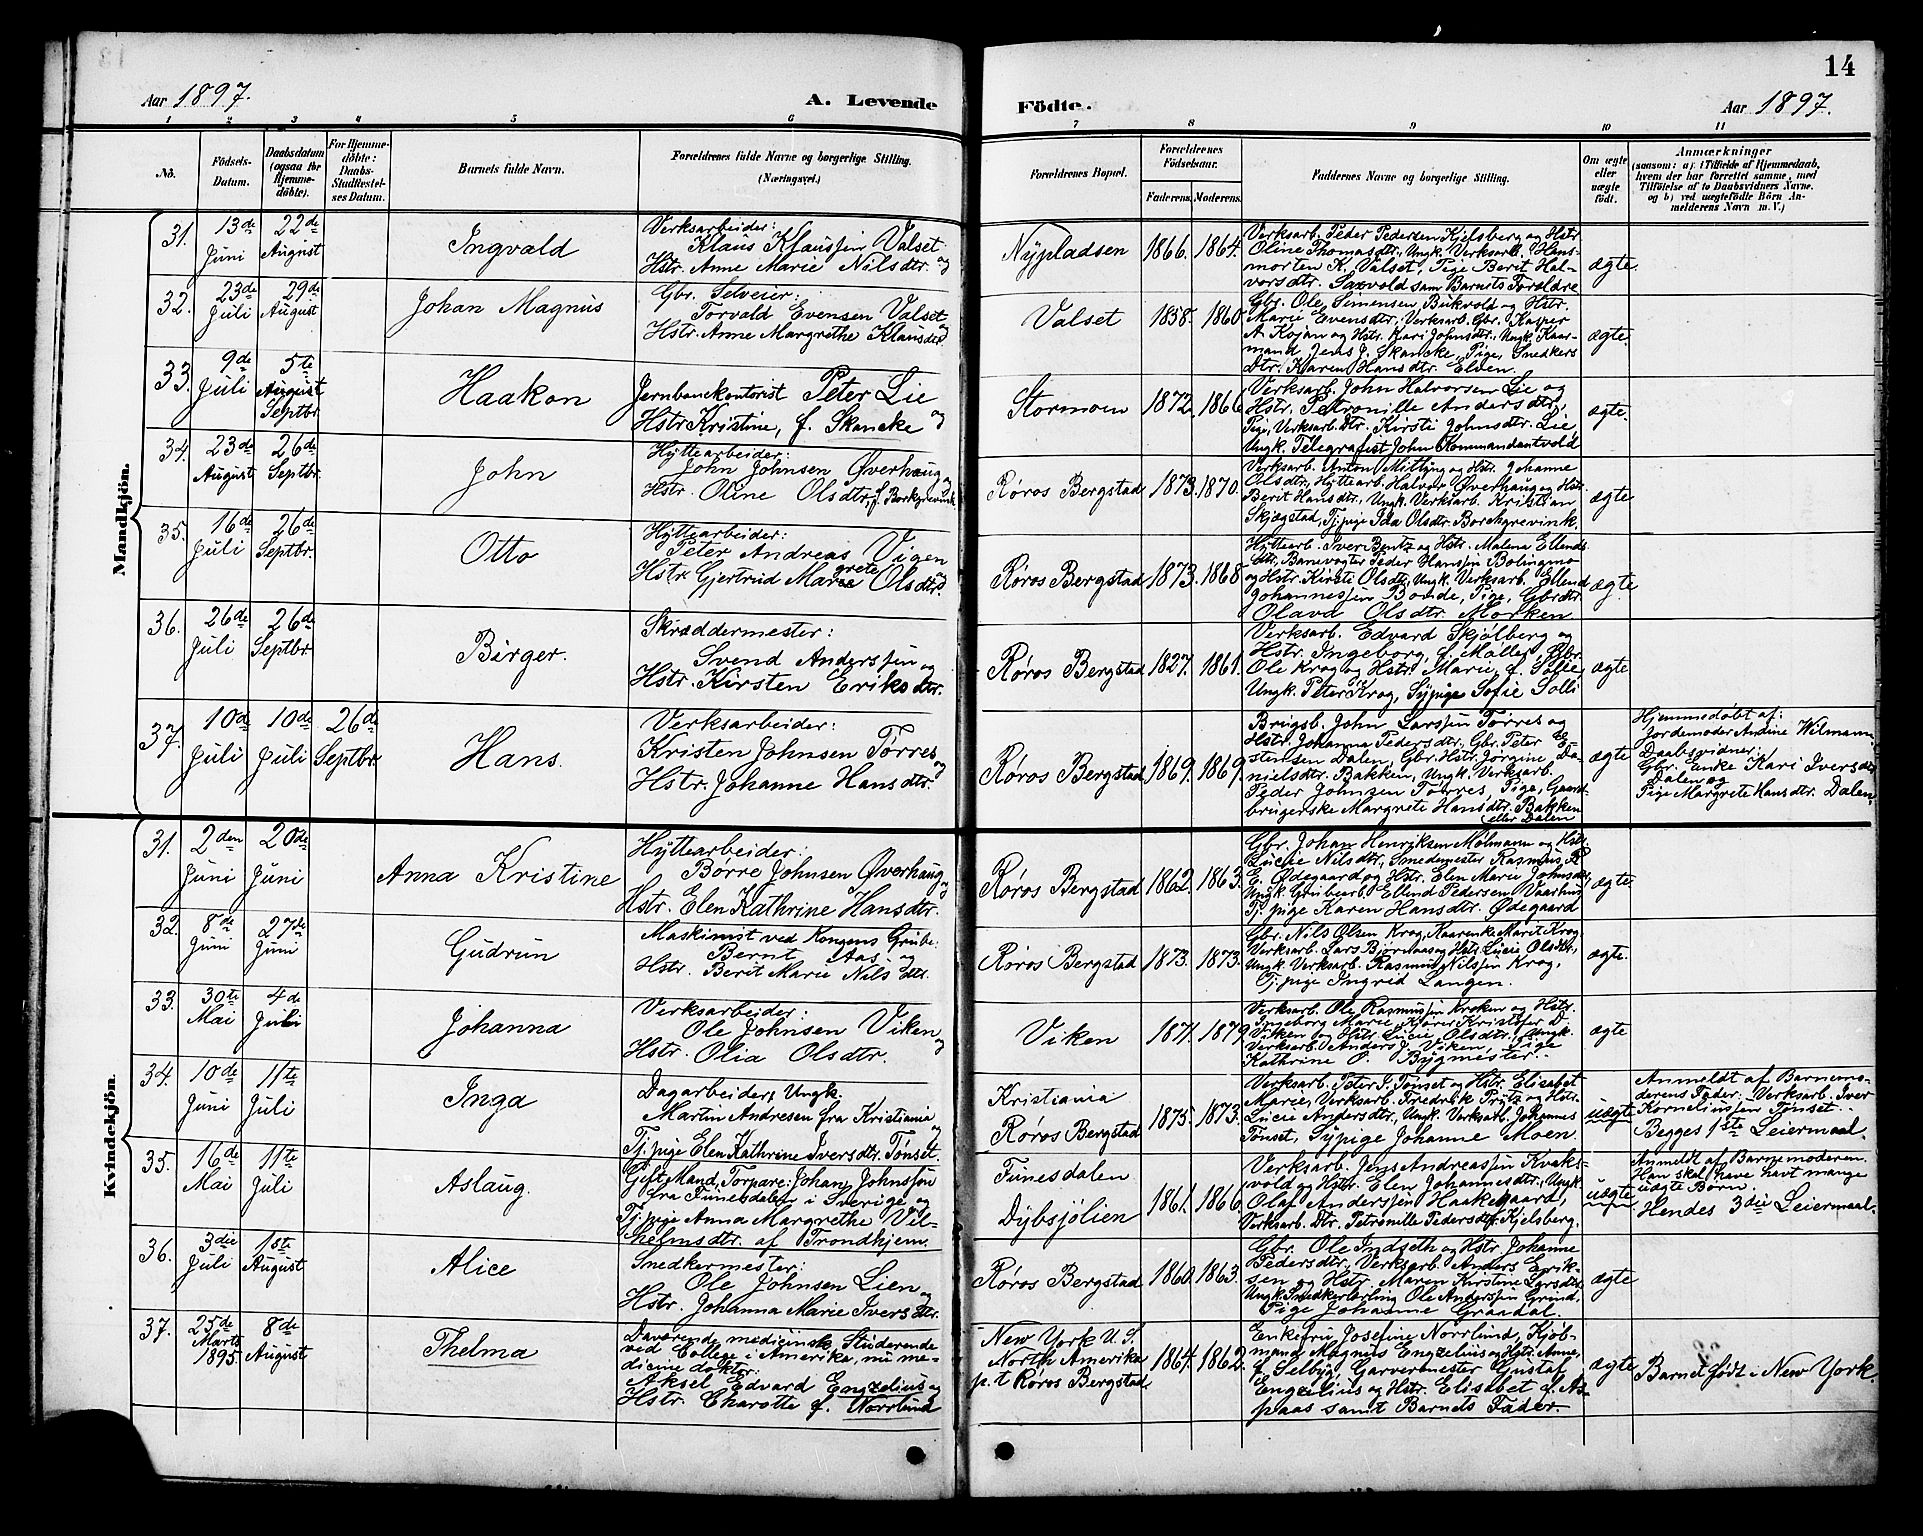 14
Aar 1897.
A. Levende
Födte.
Aar 1897.
1 2 3 4 5 6 7 8 9 10 11
No.
Födsels-
Datum.
Daabsdatum
(ogsaa for
Hjemme-
döbte).
For Hjemme-
döbte:
Daabs-
Stadfæstel-
ses Datum.
Barnets fulde Navn.
Forældrenes fulde Navne og borgerlige Stilling.
(Næringsvei.)
Forældrenes Bopæl.
Forældrenes
Födselsaar.
Faderens.
Moderens.
Faddernes Navne og borgerlige Stilling.
Om ægte
eller
uægte
födt.
Anmærkninger
(saasom: a) i Tilfælde af Hjemmedaab,
hvem der har forrettet samme, med
Tilföielse af to Daabsvidners Navne.
og b) ved uægtefödte Börn An-
melderens Navn m. V.)
Mandkjön.
31.
13de
Juni
22de
August
Ingvald
Verksarbeider:
Klaus Klaussen Valset og
Hstr. Anne Marie Nilsdtr.
Nypladsen
1866.
1864.
Verksarb. Peder Pedersen Kjelsberg og Hstr.
Oline Thomasdtr., Ungk. Verksarb. Hans-
morten K. Valset, Pige Berit Hal-
vorsdtr. Saxvold sam Barnets Foræ̈ldre
ægte.
32.
23de
Juli
29de
August
Johan Magnus
Gbr. Selveier:
Torvald Evensen Valset og
Hstr. Anne Margrethe Klausdtr.
Valset
1858.
1860.
Gbr. Ole Simensen Bukvold og Hstr.
Marie Evensdtr., Verksarb. Gbr. Kasper
A. Kojan og Hstr. Kari Johnsdtr., Ungk. Kaar-
mand Jens J. Skancke, Pige, Snedkers
Dtr. Karen Hansdtr. Elden.
ægte.
33.
9de
Juli
5te
August
Septbr.
Haakon
Jernbanekontorist Peter Lie og
Hstr. Kristine, f. Skancke
Stormoen
1872.
1866
Verksarb. John Halvorsen Lie og
Hstr. Petronille Andersdtr.,
Pige, Verksarb. Dtr. Kirsti Johnsdtr. Lie
Ungk. Telegrafist John Kommandantvold
ægte.
34.
23de
August
26de
Septbr.
John
Hyttearbeider:
John Johnsen Øverhaug og
Hstr. Oline Olsdtr. f. Borkgrevink
Røros Bergstad
1873.
1870.
Verksarb. Anton Mitting og Hstr. Johanne
Olsdtr., Hyttearb. Halvor Øverhaug og Hstr.
Berit Hansdtr., Ungk. Verksarb. Kristian
Skjægstad, Tj.pige Ida Olsdtr. Borchgrevink.
ægte.
35.
16de
Juli
26de
Septbr.
Otto
Hyttearbeider:
Peter Andreas Vigen og
Hstr. Gjertrud Margrete Olsdtr.
Røros Bergstad
1873.
1868.
Hyttearb. Iver Bentz og Hstr. Malena Ellends-
dtr., Banevogter Peder Hanssen Bolingmo
og Hstr. Kirsti Olsdtr., Ungk. Verksarb. Ellend
Johannessen Bonde, Pige, Gbr.dtr.
Olava Olsdtr. Morken
ægte.
36.
26de
Juli
26de
Septbr.
Birger.
Skræddermester:
Svend Anderssen og
Hstr. Kirsten Eriksdtr.
Røros Bergstad
1827.
1861.
Verksarb. Edvard Skjølberg og
Hstr. Ingeborg, f. Møller, Gbr.
Ole Krog og Hstr. Marie, f. Sofie,
Ungk. Peter Krog, Sypige Sofie Solli
ægte
37.
10de
Juli
10de
Juli
26de
Septbr
Hans.
Verksarbeider:
Kristen Johnsen Tørres og
Hstr. Johanne Hansdtr.
Røros Bergstad
1869.
1869.
Brugsb. John Larssen Tørres og
Hstr. Johanna Pedersdtr., Gbr. Peter E
stensen Dalen, Gbr. Hstr. Jørgine Da-
nielsdtr. Bakken, Ungk. Verksarb.
Peder Johnsen Tørres, Pige, Gaard-
brugerske Margrete Hansdtr. Bakken
eller Dalen
ægte
Hjemmedøbt af:
Jordemoder Andine Wilmann
Daabsvidner:
Gbr. Enke Kari Iversdtr.
Dalen og
Pige Margrete Hansdtr. Dalen.
Kvindekjön.
31.
2den
Juni
20de
Juni
Anna Kristine
Hyttearbeider:
Børre Johnsen Øverhaug og
Hstr. Elen Kathrine Hansdtr.
Røros Bergstad
1862.
1863.
Gbr. Johan Henriksen Mølmann og Hstr.
Lucie Nilsdtr., Smedemester Rasmus R.
E. Ødegaard og Hstr. Elen Marie Johnsdtr.,
Ungk. Grubearb. Ellend Pedersen Vaarhus,
Tj.pige Karen Hansdtr. Ødegaard
ægte.
32.
8de
Juni
27de
Juni
Gudrun
Maskinist ved Kongens Grube:
Bernt Aas og
Hstr. Berit Marie Nilsdtr.
Røros Bergstad
1873.
1873.
Gbr. Nils Olsen Krog, Kaarenke Marit Krog
Verksarb. Lars Bjørnaas og Hstr. Lucie Olsdtr.,
Ungk. Verksarb. Rasmus Nilssen Krog,
Tj.pige Ingrid Langen.
ægte.
33.
30te
Mai
4de
Juli
Johanna
Verksarbeider:
Ole Johnsen Viken og
Hstr. Olia Olsdtr.
Viken
1871.
1879
Verksarb. Ole Rasmussen Kroken og Hstr.
Ingeborg Marie, Kjører Kristofer D.
Vikken og Hstr. Lucie Olsdtr., Ungk.
Verksarb. Anders J. Viken, Pige
Kathrine O. Bygmester.
ægte
34.
10de
Juni
11te
Juli
Inga
Dagarbeider, Ungk.
Martin Andresen fra Kristiania og
Tj.pige Elen Kathrine Iversdtr. Tønset.
Kristiania
Røros Bergstad
1875.
1873.
Verksarb. Peter I. Tønset og Hstr. Elisabet
Marie, Verksarb. Fredrik Prytz og Hstr.
Lucie Andersdtr., Ungk. Verksarb. Johannes
Tønset, Sypige Johanne Moen.
uægte
Anmeldt af Barnemo-
derens Fader: Verksarb. Iver
Korneliussen Tønset.
Begges 1ste Leiermaal.
35.
16de
Mai
11te
Juli
Aslaug.
Gift Mand, Torpare: Johan Johnsson
fra Funesdalen i Sverige og
Tj.pige Anna Margrethe Vil-
helmsdtr. af Trondhjem.
Funesdalen
Dybsjølien
1861.
1866
Verksarb. Jens Andreassen Kvaks-
vold og Hstr. Elen Johannesdtr., Ungk
Olaf Anderssen Haakenaard,
Verksarb. Dtr. Petronille Pedersdtr. Kjelsberg.
uægte
Anmeldt af Barnemoderen.
Han skal have havt mange
uægte Børn.
Hendes 3die Leiermaal.
36.
3die
Juli
1ste
August
Alice
Snedkermester:
Ole Johnsen Lien og
Hstr. Johanna Marie Iversdtr.
Røros Bergstad
1860.
1863.
Gbr. Ole Indseth og Hstr. Johanne
Pedersdtr., Verksarb. Anders Erik-
sen og Hstr. Maren Kirstine Larsdtr.
Ungk. Snedkerlærling Ole Anderssen Grind,
Pige Johanne Graadal.
ægte
37.
25de
Marts
1895.
8de
August
Thelma
Daværende medicinsk Studerende
ved College i Amerika, nu me-
dicine doktor
Aksel Edvard Engzelius og
Hstr. Charotte f. Norrlund
New York U. S.
North Amerika
p.t Røros Bergstad.
1864.
1862.
Enkefru Josefine Norrlund, Kjøb-
mand Magnus Engzelius og Hstr. Anne,
f. Selbij, Garvermester Gustaf
Engzelius og Hstr. Elisabet f. As-
paas samt Barnets Fader.
ægte
Barnet født i New York.